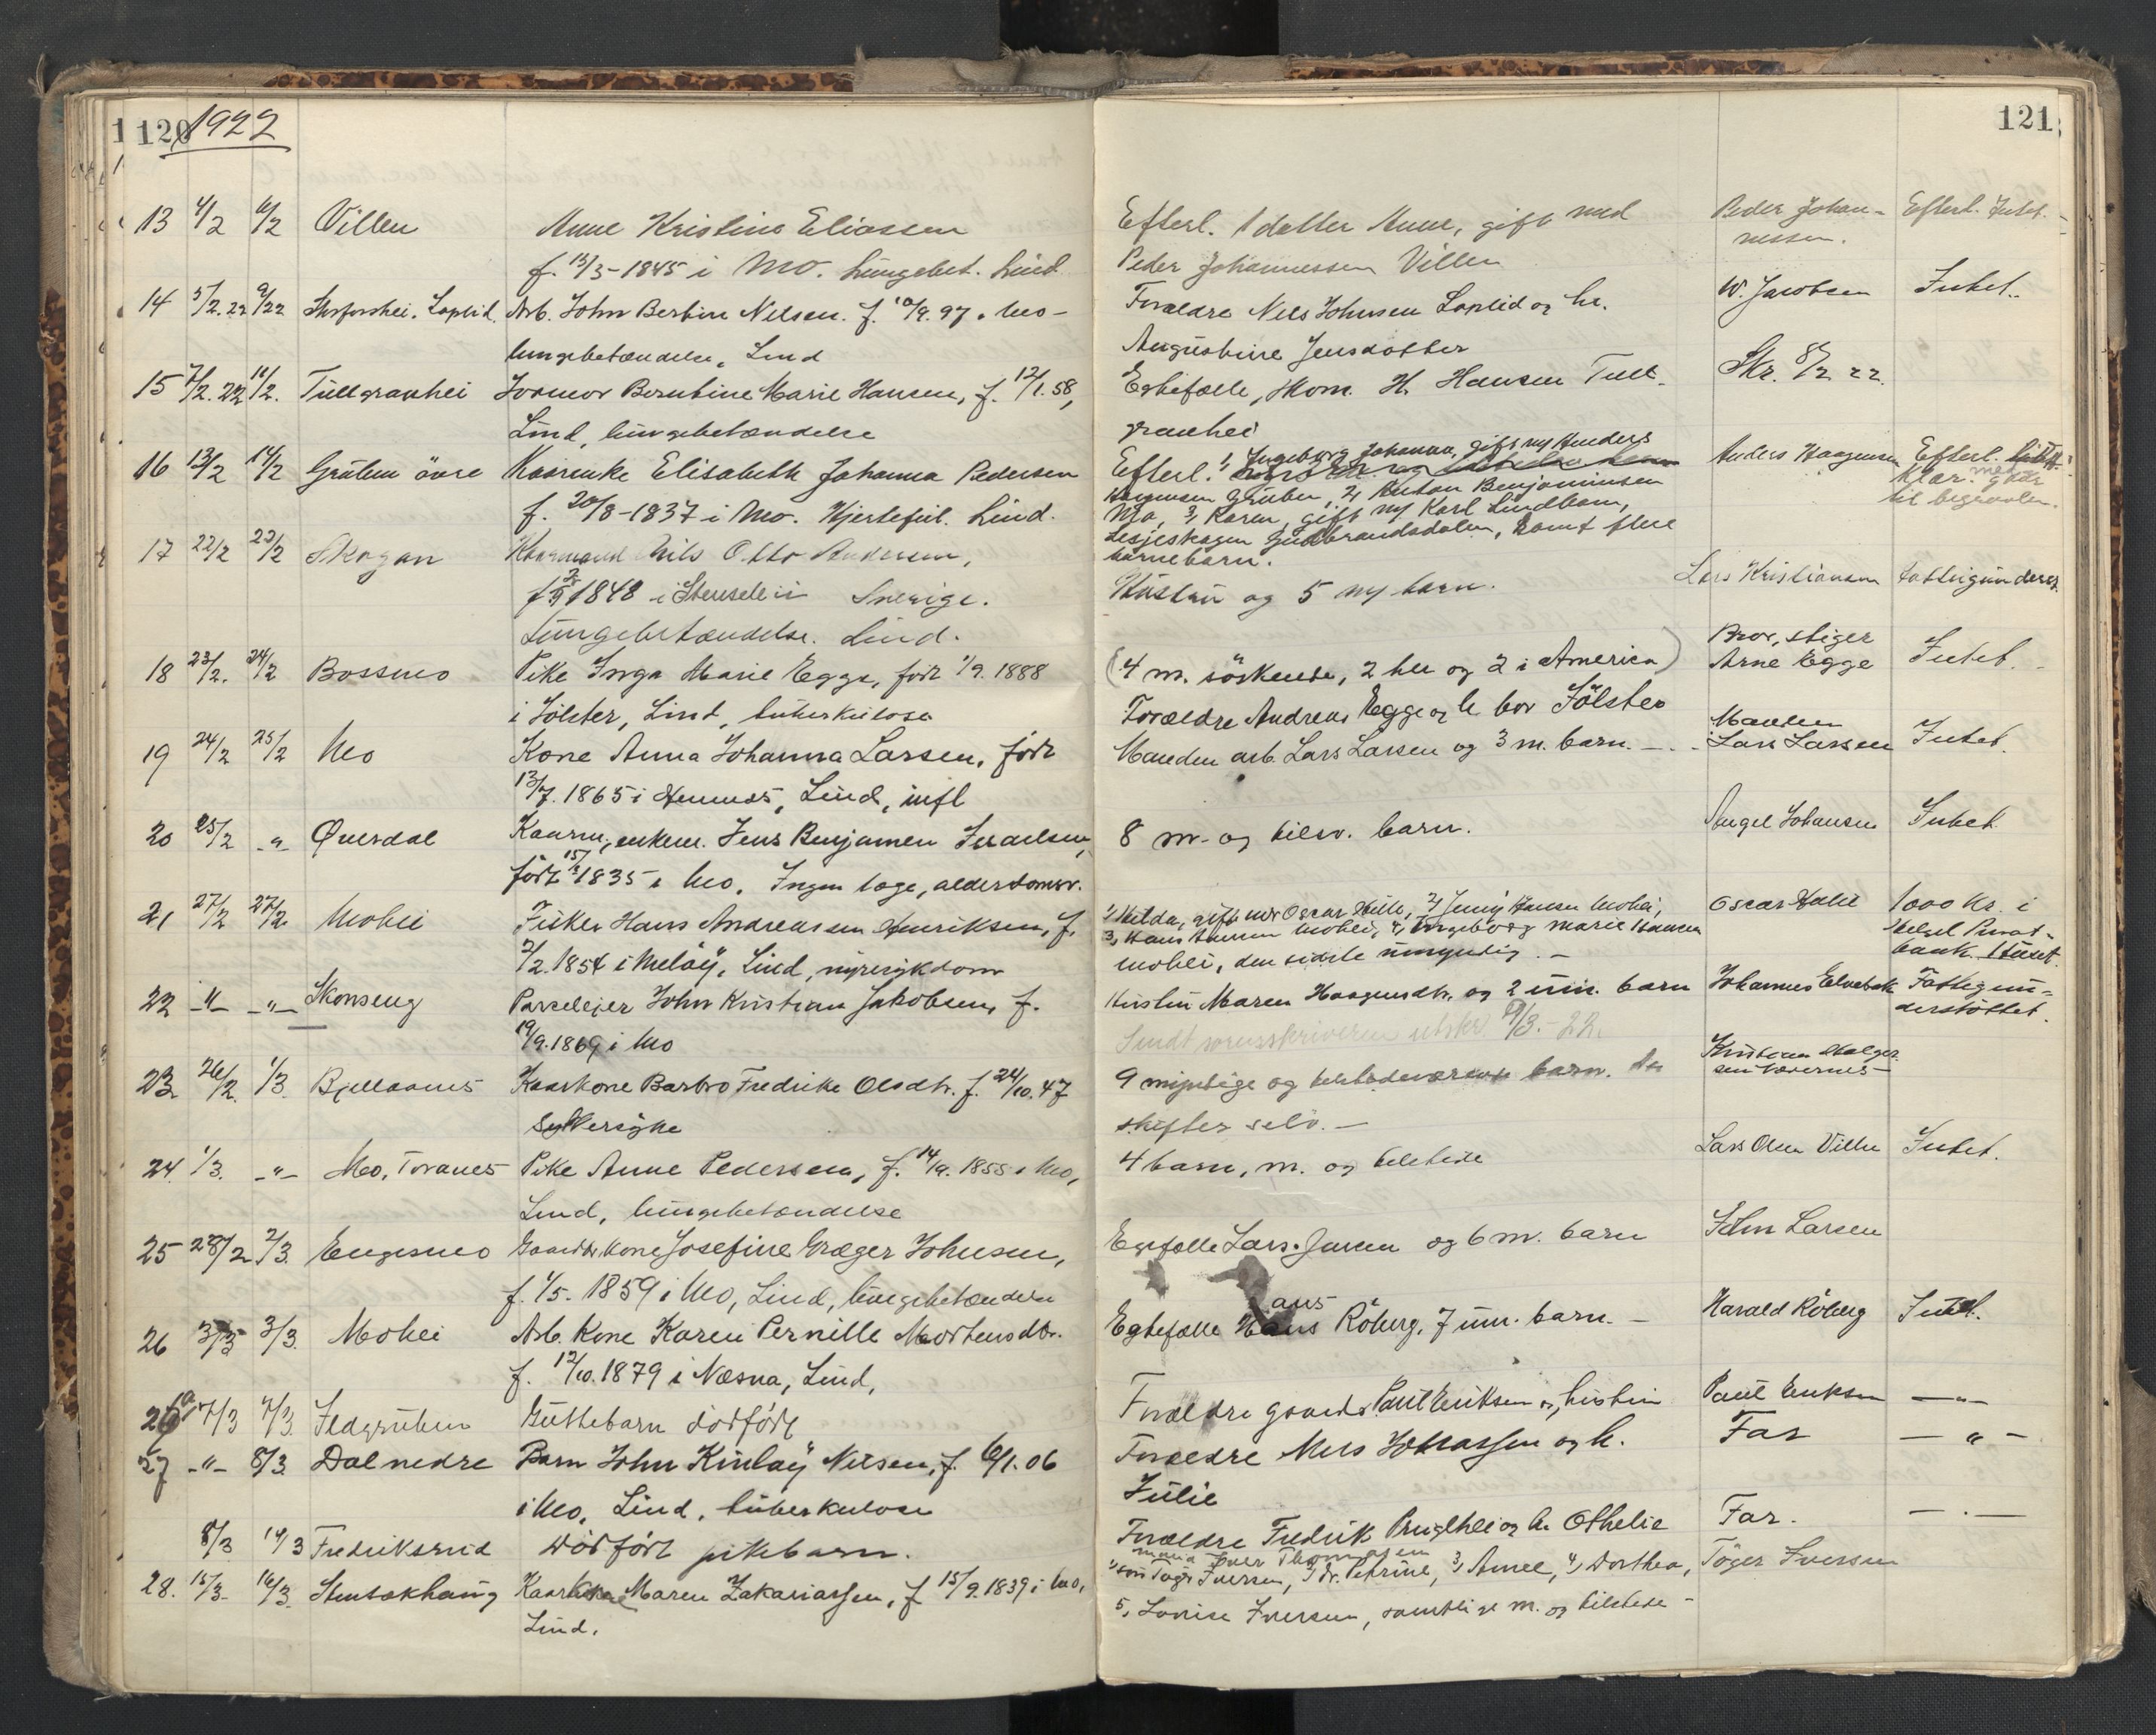 120 1922
13 4/2 6/2 Villen Anne Kristine Eliassen
f. 13/3-1845 i Mo. Lungebet. Lind
14 5/2.22 9/22 Storforshei, Laplid. Arb. John Bertin Nilsen. f. 10/9.97. Mo-
lungebetændelse, Lind
15 7/2.22 10/2. Tullgranhei Jormor Berntine Marie Hansen, f. 12/1.58,
Lind, lungebetændelse
16 13/2 14/2 Gruben övre Kaarenke Elisabeth Johanna Pedersen
f. 20/8-1837 i Mo. Hjertefeil. Lind.
17 22/2 23/2 Skogan Kaarmand Nils Otto Andersen,
1848 i Stensele i Sverige.
Lungebetændelse. Lind.
18 23/2. 24/2 Bossmo Pike Inga Marie Egge, födt 1/9.1888
i Jölster, Lind, tuberkulose
19 24/2 25/2 Mo Kone Anna Johanna Larsen, födt
13/7.1865 i Hemnes, Lind, infl
20 25/2 -"- Øverdal Kaarm., enkem. Jens Benjamen Israelsen,
födt 15/ 1835 i Mo. Ingen læge, alderdomsv.
21 27/2 27/2. Mohei Fisker Hans Andreassen Henriksen, f.
2/2.1854 i Melöy, Lind, nyresykdom
22 -"- -"- Skonseng Parcelejer John Kristian Jakobsen, f.
19/9.1869 i Mo
23 26/2. 1/3. Bjellaanes Kaarkone Barbro Fredrike Olsdtr. f. 24/10.47
Sukkersyke
24. 1/3. -"- Mo, Toranes Pike Anne Pedersen, f. 14/9.1855 i Mo,
Lind, lungebetændelse
25 28/2 2/3. Engesmo Gaardbr.kone Josefine Græger Johnsen,
f. 1/5. 1859 i Mo, Lind, lungebetændelse
26 3/3 3/3. Mohei Arb. kone Karen Pernille Mortensdtr.
f. 12/10.1879 i Nesna, Lind,
26 a 7/3 7/3. Ildgruben Guttebarn dödfödt
27 -"- 8/3 Dalnedre Barn John Kinlay Nilsen, f. 6/1.06
i Mo, Lind, tuberkulose
8/3 14/3 Fredriksrud Dödfödt pikebarn.
28. 15/3. 16/3. Stensokhaug Kaarkone Maren Zakariassen, f 15/9.1839 i Mo,
Lind.
121
Efterl. 1 datter Anne, gift med Peder Johan- Efterl. Intet.
Peder Johannessen Villen nessen.
Forældre Nils Johnsen Laplid og hr. W. Jacobsen Intet..
Augustine Jensdatter
Egtefælle, skom. H. Hansen Tull- Skr. 8/2 22.
granhei
Efterl. 1, Ingeborg Johanna, gift m/ Anders Anders Haagensen Efterl. litt
Haagensen Gruben, 2, Anton Benjaminsen klær.
Mo, 3, Karen, gift m/ Karl Lindbom, til begravelsen.
Lesjeskogen Gudbrandsdalen, samt flere
barnebarn.
Hustru og 5 my. barn. Lars Kristiansen fattigunderst.
(4 m. söskende, 2 her og 2 i America) Bror, stiger Arne Egge Intet.
Forældre Andreas Egge og h. bor Jölster
Manden arb. Lars Larsen og 3 m. barn. Manden Lars Larsen Intet.
8 m. og tilsv. barn. Angel Johansen Intet
1, Hilda, gift m/ Oscar Halle, 2, Jenny Hansen Mohei, Oscar Halle 1000 kr. i
3, Hans Hansen Mohei, 4, Ingeborg Marie Hansen Helgel. Privat-
Mohei, den sidste umyndig. - bank. 1 huset.
Hustru Maren Haagensdtr. og 2 um. barn Johannes Elvebak Fattigun-
Sendt sorenskriveren utskr. 9/3.-22. derstöttet.
9 myndige og tilstedeværende barn. De Kristian
skifter selv. -
4 barn, m. og tilstede Lars Olsen Villen Intet.
Egtefælle Lars Jensen og 6 m. barn John Larsen
Egtefælle Hans Röberg, 7 um. barn. - Harald Röberg Intet.
Forældre gaardbr. Paul Eriksen og hustru Paul Eriksen -"-
Forældre Nils Johnassen og h. Far -"-
Julie
Forældre Fredrik og h. Othelie Far. -"-
mand Iver Thomassen
1, sön Töger Iversen, 2, dr. Petrine, 3, Amee, 4, Dorthea, Töger Iversen
5, Lovise Iversen, samtlige m. og tilstede -